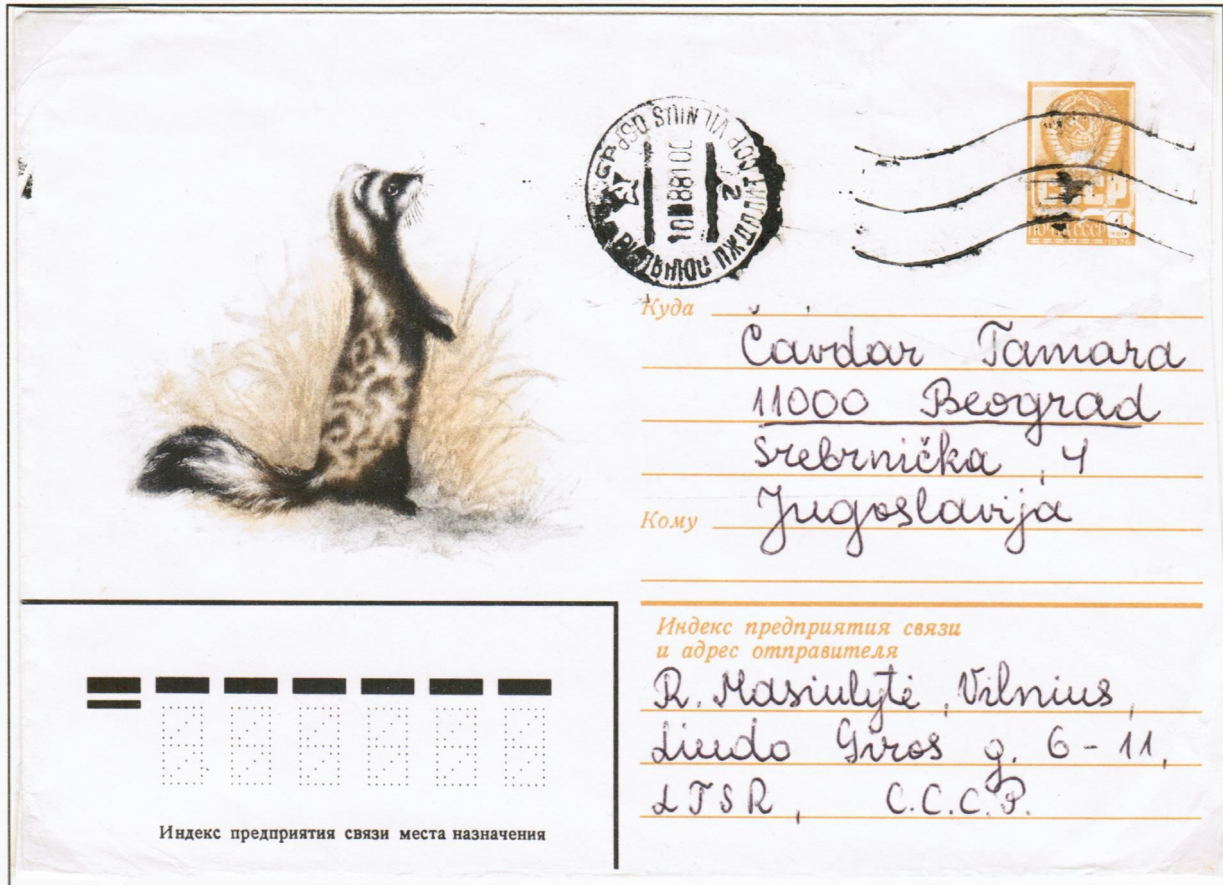 СССР
ПОЧТА СССР 4
1976
VILNIUS
2
Куда
Čavdar Tamara
11000 Beograd
Srebrnička, 4
Кому
Jugoslavija
Индекс предприятия связи
и адрес отправителя
R. Masiulytė, Vilnius,
Liudo Giros g. 6-11,
LTSR, C.C.C.P.
Индекс предприятия связи места назначения